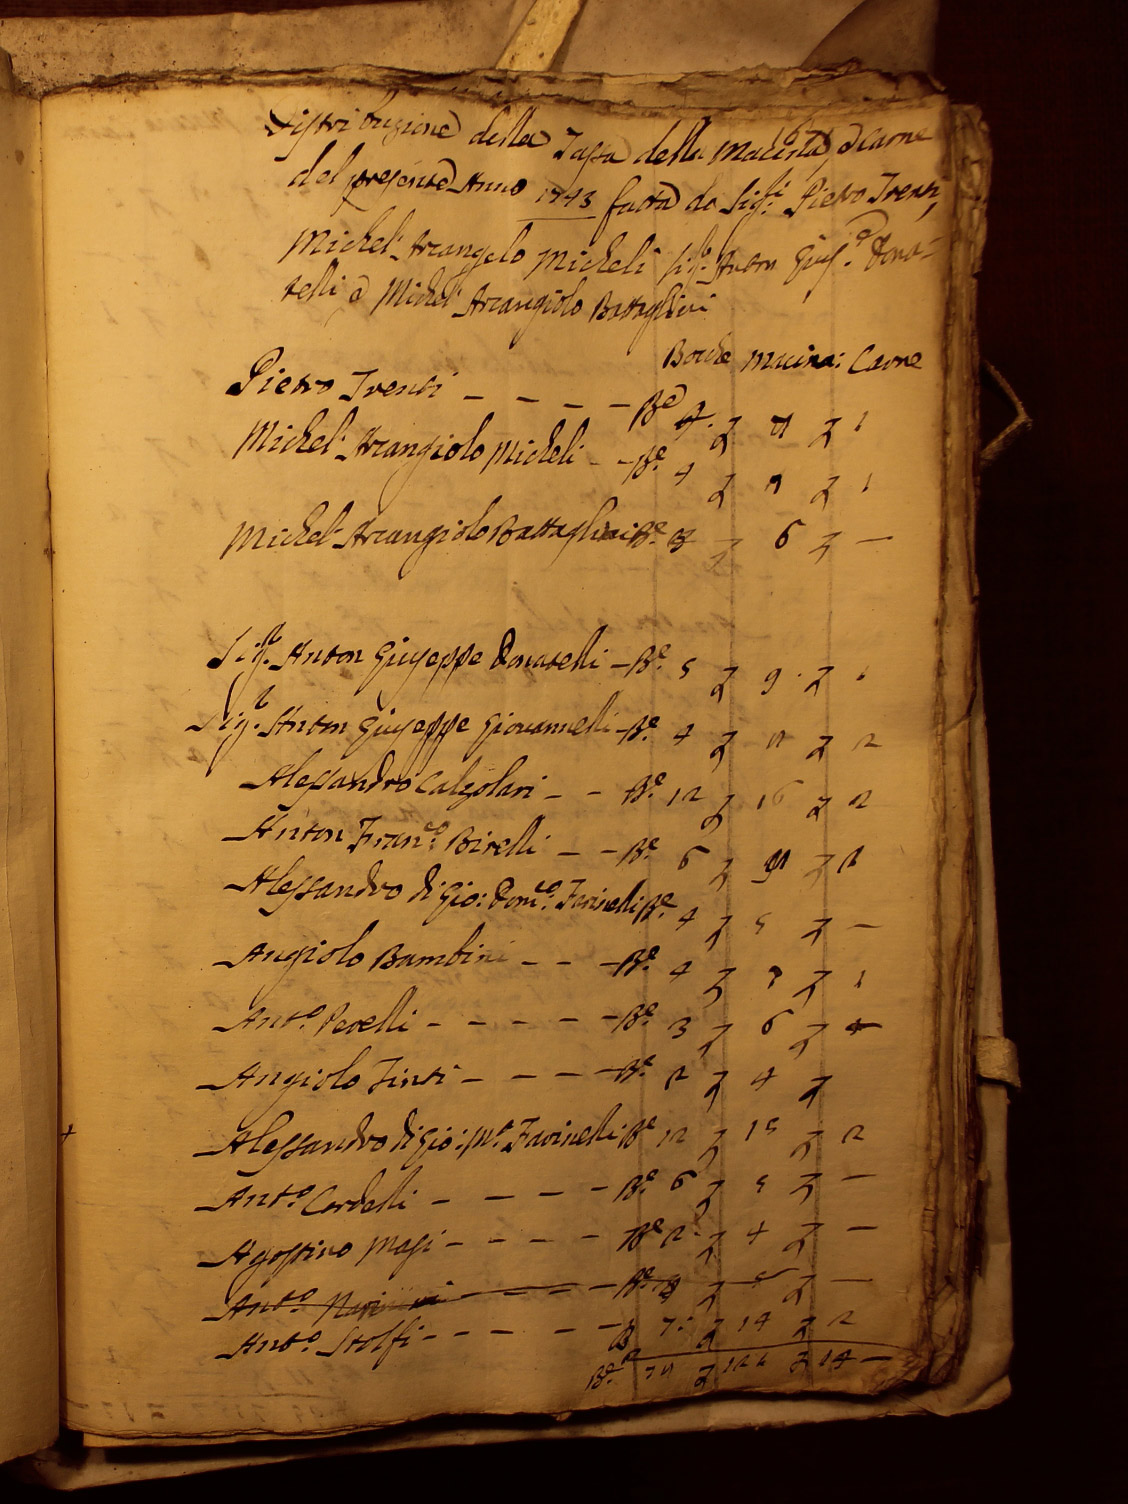 Distribuzione della Tassa della Macina, e Carne
del presente Anno 1743 fatta da Sig.ri Pietro Trenti,
Michel' Arcangelo Micheli Sig.e Anton Gius.e Dona=
telli e Michel' Arcangiolo Battaglini
Bocche Macina: Carne
Pietro Trenti - - - - - B.e 4. Z Z 1
Michel' Arcangiolo Micheli - - B.e 4 Z Z 1
Michel' Arcangiolo Battaglini B.e Z 6 Z -
Sig.r Anton Giuseppe Donatelli - B.e 5 Z 9 . Z 1
Sig.r Anton Giuseppe Giovannelli - B.e 4 Z Z 2
Alessandro Calzolari - - B.e 12 Z 16 Z 2
Anton Fran.co Birelli - - B.e 6 Z Z
Alessandro di Gio: Dom.co Farinelli B.e 4 Z 5 Z -
Angiolo Bambini - - - B.e 4 Z Z 1
Ant.o Perelli - - - - - B.e 3 Z 6 Z
Angiolo Tinti - - - - B.e 2 Z 4 Z
+ Alessandro di Gio: M.a Farinelli B.e 12 Z 15 Z 2
Ant.o Cardelli - - - - B.e 6 Z 5 Z -
Agostino Masi - - - - B.e 2 Z 4 Z -
Ant.o - - - - B.e Z Z -
Ant.o Stolfi - - - - - B 7: Z 14 Z 2
B.e Z Z 14 -